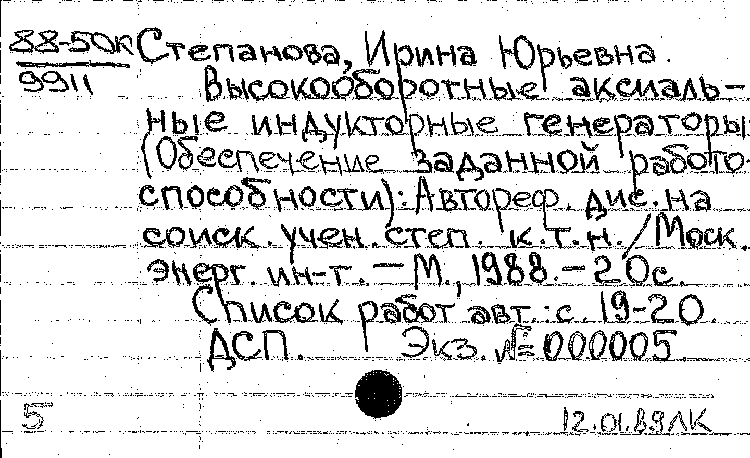 88-50К Степанова, Ирина Юрьевна.
9911 Высокооборотные аксиаль-
ные индукторные генераторы
(Обеспечение заданной работо-
способности): Автореф. дис. на
соиск. учен. степ. к.т.н. / Моск.
энерг. ин-т. — М., 1988. — 20с.
Список работ авт.: с. 19-20.
ДСП. Экз. № 000005.
5 12.01.89ЛК